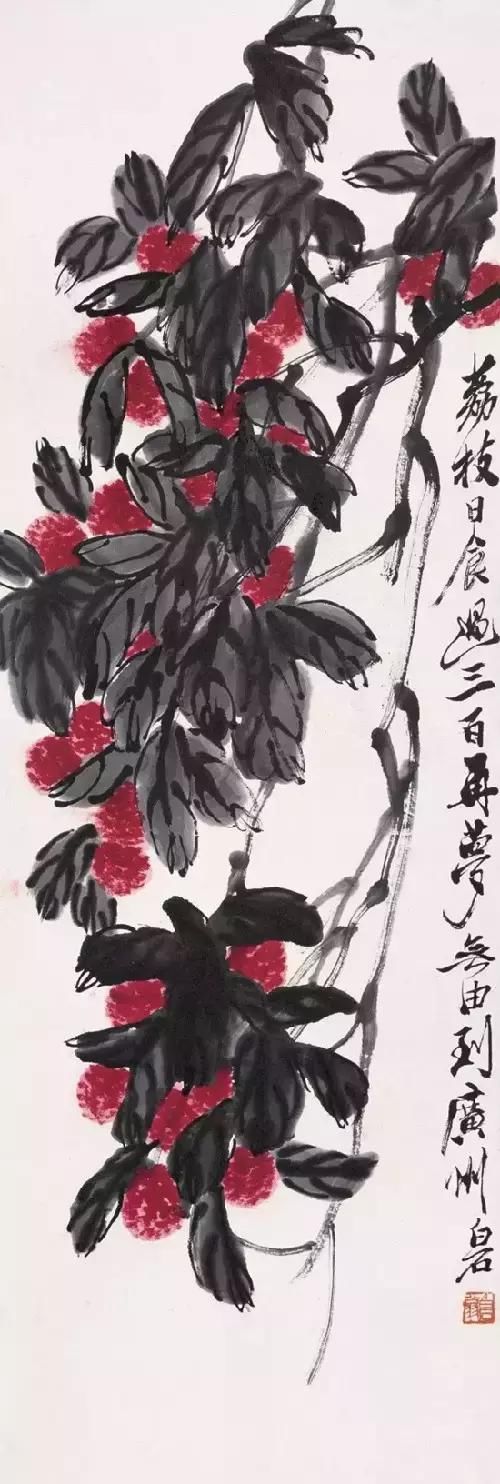 荔枝日食過三百再夢無由到廣州白石